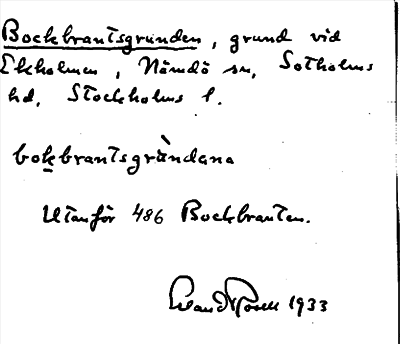 Bockbrantsgrunden, grund vid
Ekholmen, Nämdö sn, Sotholms
hd, Stockholms l.
bokbrantsgràndana
Utanför 486 Bockbranten.
1933